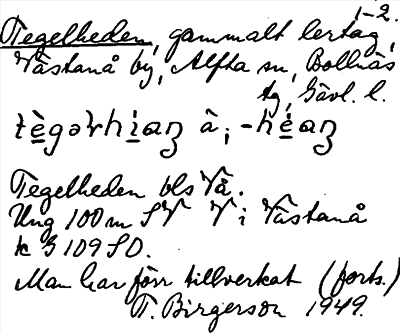 1-2.
Tegelheden, gammalt lertag,
Västanå by, Alfta sn, Bollnäs
tg, Gävl. l.
tègərhi̱aꞑ â; -hé̱aꞑ
Tegelheden bls Vå.
Ung 100 m SV V i Västanå
k G 109 SO.
Man har förr tillverkat (forts.)
T. Birgerson 1949.